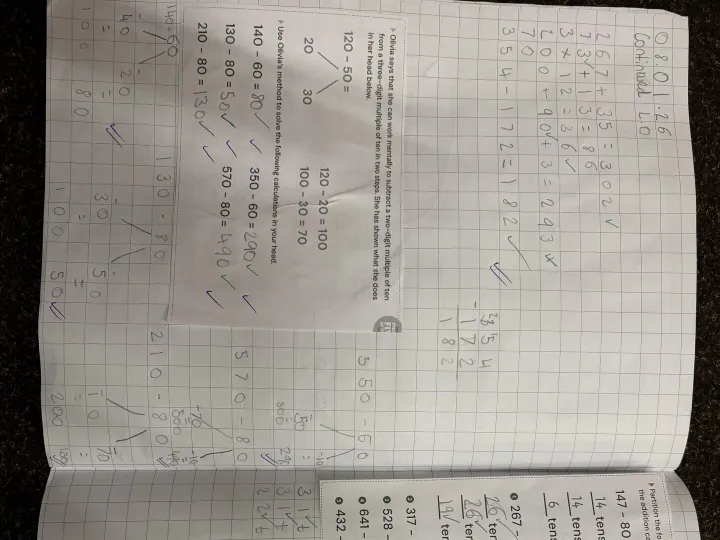 08.01.26
Continued L.O
267 + 35 = 302 ✓
73 + 13 = 86
3 x 12 = 36 ✓
200 + 90 + 3 = 293
70
354 - 172 = 182 ✓
- 172
182
Olivia says that she can work mentally to subtract a two-digit multiple of ten
from a three-digit multiple of ten in two steps. She has shown what she does
in her head below.
120 - 50 =
20 30
120 - 20 = 100
100 - 30 = 70
Use Olivia's method to solve the following calculations in your head.
140 - 60 = 80 ✓ 350 - 60 = 290 ✓
130 - 80 = 50 ✓ 570 - 80 = 490 ✓
210 - 80 = 130 ✓
140-60
40 20
= =
100 80
130 - 80
30 50
= =
100 50
210 - 80
10 70
= =
200
350 - 60
50
300
570 - 80
-70 -10
= =
500
Partition the fo
the addition ca
147 - 80
14 tens
14 tens
6 tens
267 -
26 ter
26 ter
19 ter
317 -
528 -
641 -
432 -